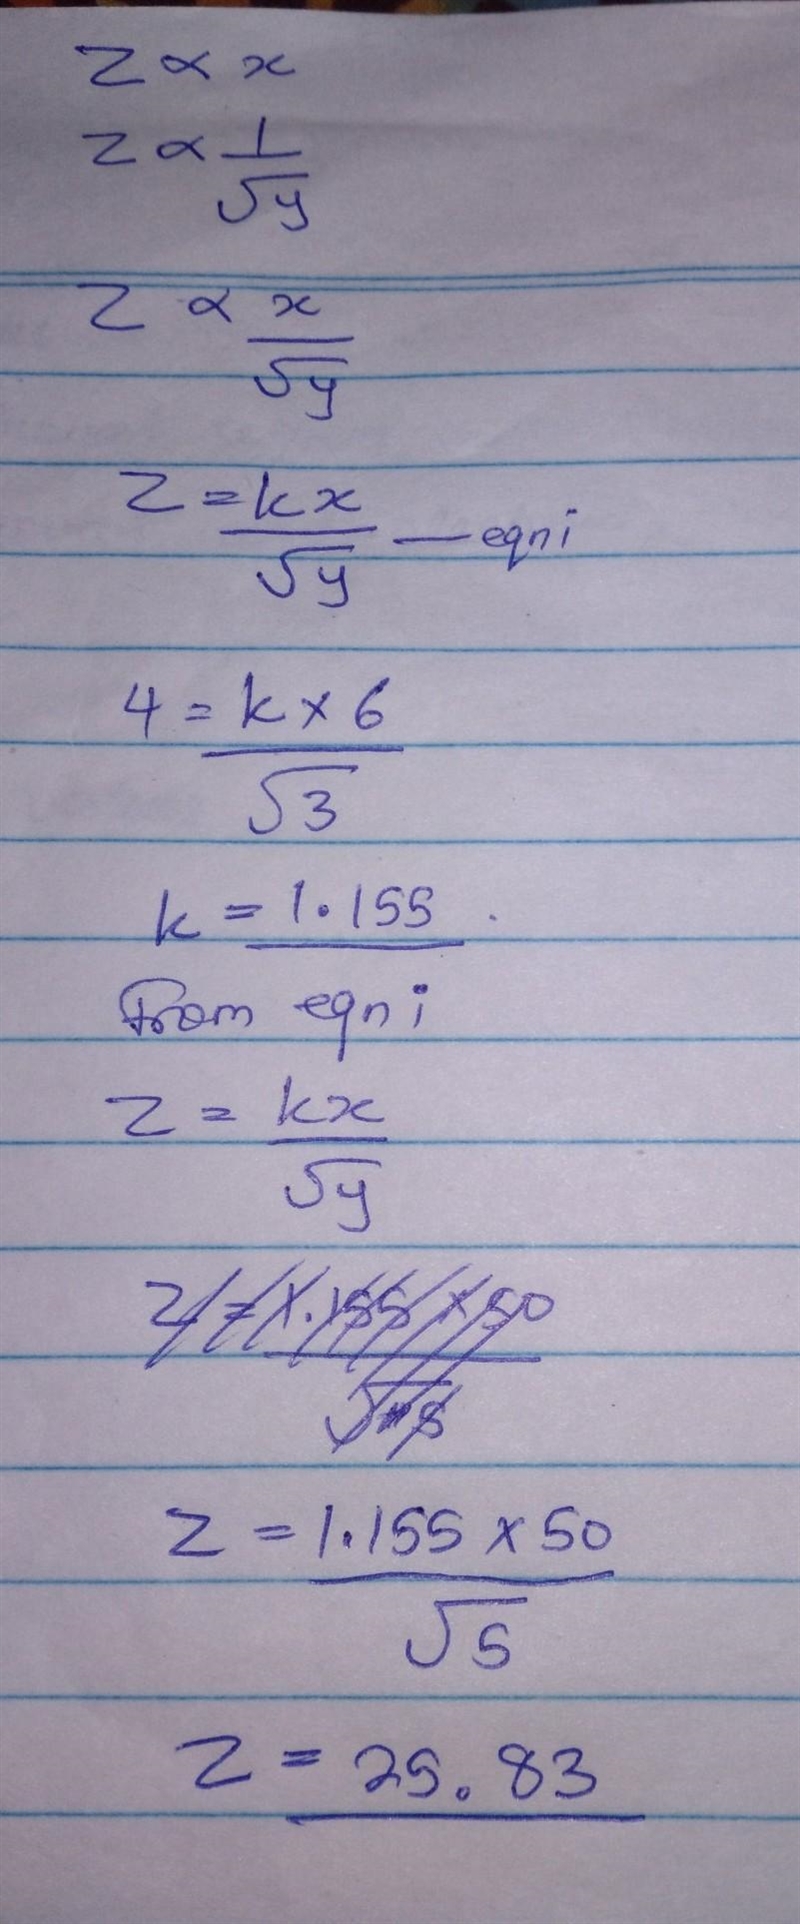 Z ∝ x
Z ∝ 1/√y
Z ∝ x/√y
Z = kx/√y — eqn i
4 = k × 6/√3
k = 1.155.
From eqn i
Z = kx/√y
Z = 1.155 × 50
Z = 1.155 × 50/√5
Z = 25.83